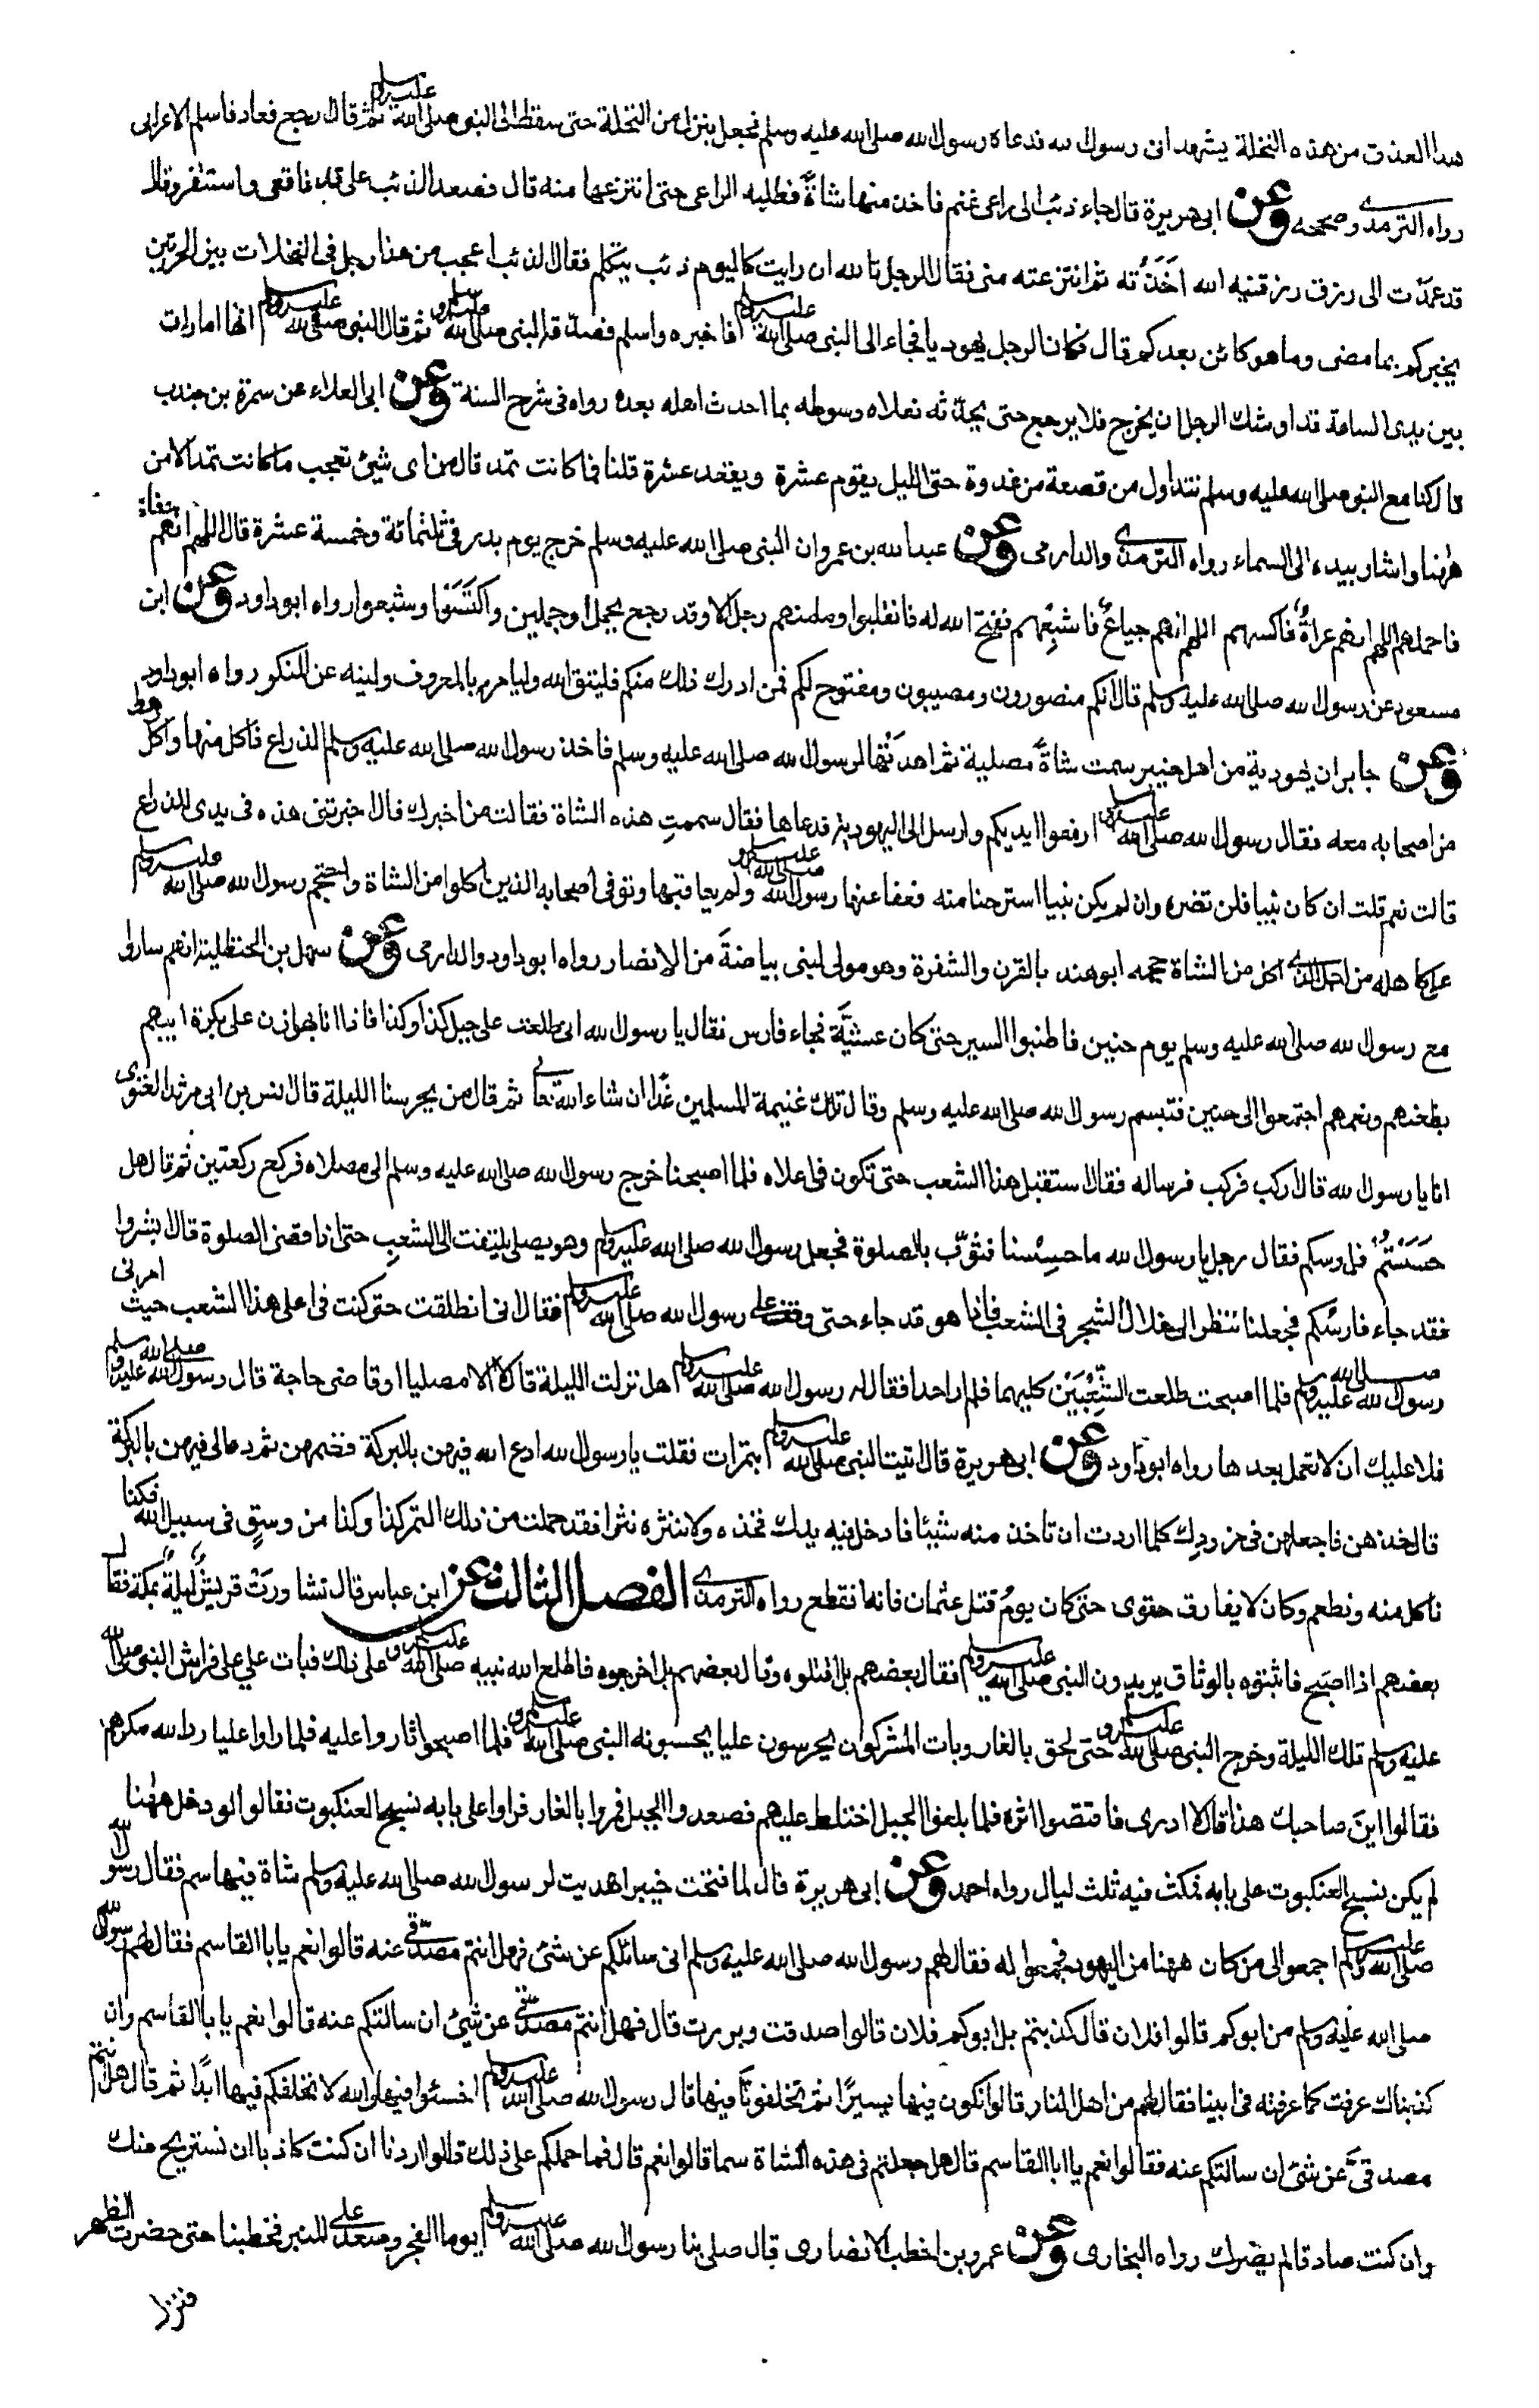 هذا العذق من هذه النخلة يشهد انى رسول الله فدعاه رسول الله صلى الله عليه وسلم فجعل ينزل من النخلة حتى سقط الى النبى صلى الله عليه وسلم ثم قال ارجع فعاد فاسلم الاعرابى
رواه الترمذى وصححه وعن ابى هريرة قال جاء ذئب الى راعى غنم فاخذ منها شاةً فطلبه الراعى حتى انتزعها منه قال فصعد الذئب على تل فاقعى واستثفر وقال
قد عمدت الى رزق رزقنيه الله اَخَذْتُه ثم انتزعته منى فقال الرجل تالله ان رايت كاليوم ذئب يتكلم فقال الذئب اعجب من هذا رجل فى النخلات بين الحرتين
يخبركم بما مضى وما هو كائن بعدكم قال فكان الرجل يهوديا فجاء الى النبى صلى الله عليه وسلم فاخبره واسلم فصدقه النبى صلى الله عليه وسلم ثم قال النبى صلى الله عليه وسلم انها امارات
بين يدى الساعة قد اوشك الرجل ان يخرج فلا يرجع حتى يحدّثه نعلاه وسوطه بما احدث اهله بعده رواه فى شرح السنة وعن ابى العلاء عن سمرة بن جندب
قال كنا مع النبى صلى الله عليه وسلم نتداول من قصعة من غدوة حتى الليل يقوم عشرة ويقعد عشرة قلنا فما كانت تمد قال من اى شئ تعجب ما كانت تمد الا من
ههنا واشار بيده الى السماء رواه الترمذى والدارمى وعن عبد الله بن عمرو ان النبى صلى الله عليه وسلم خرج يوم بدر فى ثلثمائة وخمسة عشرة قال اللهم انهم حفاة
فاحملهم اللهم انهم عراةٌ فاكسهم اللهم انهم جياعٌ فاشبِعهم ففتح الله له فانقلبوا وما منهم رجل الا وقد رجع بجمل او جملين واكتَسَوا وشبعوا رواه ابو داود وعن ابن
مسعود عن رسول الله صلى الله عليه وسلم قال انكم منصورون ومصيبون ومفتوح لكم فمن ادرك ذلك منكم فليتق الله وليامر بالمعروف ولينه عن المنكر رواه ابو داود
وعن جابر ان يهودية من اهل خيبر سمت شاةً مصلية ثم اهدتها لرسول الله صلى الله عليه وسلم فاخذ رسول الله صلى الله عليه وسلم الذراع فاكل منها واكل رهط
من اصحابه معه فقال رسول الله صلى الله عليه وسلم ارفعوا ايديكم وارسل الى اليهودية فدعاها فقال سممتِ هذه الشاة فقالت من اخبرك قال اخبرتنى هذه فى يدى للذراع
قالت نعم قلت ان كان نبيا فلن تضره وان لم يكن نبيا استرحنا منه فعفا عنها رسول الله صلى الله عليه وسلم ولم يعاقبها وتوفى اصحابه الذين اكلوا من الشاة واحتجم رسول الله صلى الله عليه وسلم
على كاهله من اجل الذى اكل من الشاة حجمه ابو هند بالقرن والشفرة وهو مولى لبنى بياضةَ من الانصار رواه ابو داود والدارمى وعن سهل بن الحنظلية انهم ساروا
مع رسول الله صلى الله عليه وسلم يوم حنين فاطنبوا السير حتى كان عشيّةً فجاء فارس فقال يا رسول الله انى طلعت على جبل كذا وكذا فاذا انا بهوازن على بكرة ابيهم
بظعنهم ونعمهم اجتمعوا الى حنين فتبسم رسول الله صلى الله عليه وسلم وقال تلك غنيمة المسلمين غدًا ان شاء الله تعالى ثم قال من يحرسنا الليلة قال انس بن ابى مرثد الغنوى
انا يا رسول الله قال اركب فركب فرسا له فقال استقبل هذا الشعب حتى تكون فى اعلاه فلما اصبحنا خرج رسول الله صلى الله عليه وسلم الى مصلاه فركع ركعتين ثم قال هل
حَسَسْتُمْ فارسكم فقال رجل يا رسول الله ما حسِسْنا فثوّب بالصلوة فجعل رسول الله صلى الله عليه وسلم وهو يصلى يلتفت الى الشعب حتى اذا قضى الصلوة قال ابشروا
فقد جاء فارسُكم فجعلنا ننظر الى خلال الشجر فى الشعب فاذا هو قد جاء حتى وقف على رسول الله صلى الله عليه وسلم فقال انى انطلقت حتى كنت فى اعلى هذا الشعب حيث امرنى
رسول الله صلى الله عليه وسلم فلما اصبحت طلعت الشِّعْبَيْن كليهما فلم ار احدا فقال له رسول الله صلى الله عليه وسلم هل نزلت الليلة قال لا الا مصليا او قاضى حاجة قال رسول الله صلى الله عليه وسلم
فلا عليك ان لا تعمل بعدها رواه ابو داود وعن ابى هريرة قال اتيت النبى صلى الله عليه وسلم بتمرات فقلت يا رسول الله ادع الله فيهن بالبركة فضمهن ثم دعا لى فيهن بالبركة
قال خذهن فاجعلهن فى مزودك كلما اردت ان تاخذ منه شيئا فادخل فيه يدك فخذه ولا تنثره نثرا فقد حملت من ذلك التمر كذا وكذا من وسقٍ فى سبيل الله فكنا
ناكل منه ونطعم وكان لا يفارق حقوى حتى كان يومُ قتل عثمان فانه انقطع رواه الترمذى الفصل الثالث عن ابن عباس قال تشاورتْ قريشٌ ليلةً بمكة فقال
بعضهم اذا اصبح فاثبتوه بالوثاق يريدون النبى صلى الله عليه وسلم فقال بعضهم بل اقتلوه وقال بعضهم بل اخرجوه فاطلع الله نبيه صلى الله عليه وسلم على ذلك فبات علي على فراش النبى صلى الله
عليه وسلم تلك الليلة وخرج النبى صلى الله عليه وسلم حتى لحق بالغار وبات المشركون يحرسون عليا يحسبونه النبى صلى الله عليه وسلم فلما اصبحوا ثاروا عليه فلما راوا عليا رد الله مكرهم
فقالوا اين صاحبك هذا قال لا ادرى فاقتصوا اثره فلما بلغوا الجبل اختلط عليهم فصعدوا الجبل فمروا بالغار فراوا على بابه نسيج العنكبوت فقالوا لو دخل ههنا
لم يكن نسج العنكبوت على بابه فمكث فيه ثلث ليال رواه احمد وعن ابى هريرة قال لما فتحت خيبر اهديت لرسول الله صلى الله عليه وسلم شاة فيها سم فقال رسول الله
صلى الله عليه وسلم اجمعوا لى من كان ههنا من اليهود فجمعوا له فقال لهم رسول الله صلى الله عليه وسلم انى سائلكم عن شئ فهل انتم مصدّقى عنه قالوا نعم يا ابا القاسم فقال لهم رسول الله
صلى الله عليه وسلم من ابوكم قالوا فلان قال كذبتم بل ابوكم فلان قالوا صدقت وبررت قال فهل انتم مصدّقى عن شئ ان سالتكم عنه قالوا نعم يا ابا القاسم وان
كذبناك عرفت كما عرفته فى ابينا فقال لهم من اهل النار قالوا نكون فيها يسيرًا ثم تخلفونّا فيها قال رسول الله صلى الله عليه وسلم اخسئوا فيها والله لا نخلفكم فيها ابدًا ثم قال هل انتم
مصدقىَّ عن شئ ان سالتكم عنه فقالوا نعم يا ابا القاسم قال هل جعلتم فى هذه الشاة سما قالوا نعم قال فما حملكم على ذلك قالوا اردنا ان كنت كاذبا ان نستريح منك
وان كنت صادقا لم يضرك رواه البخارى وعن عمرو بن اخطب الانصارى قال صلى بنا رسول الله صلى الله عليه وسلم يوما الفجر وصعد على المنبر فخطبنا حتى حضرت الظهر
فنزل